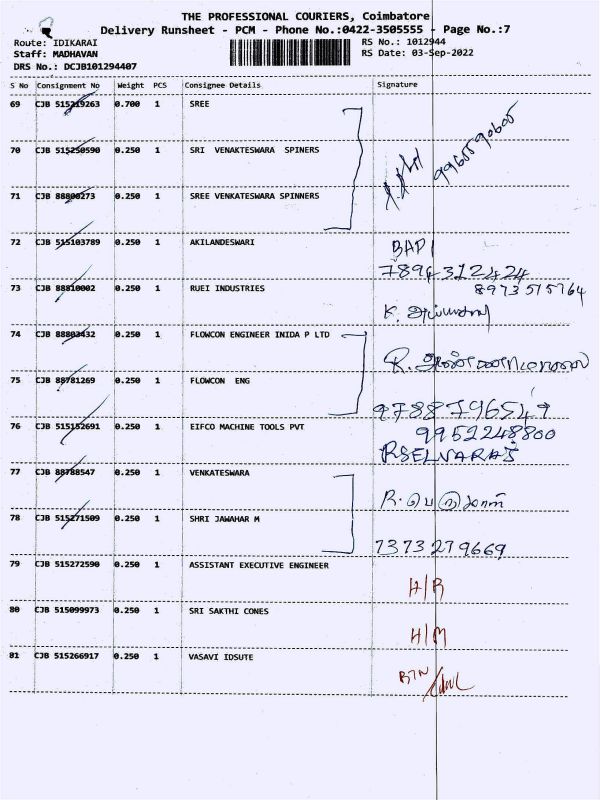 THE PROFESSIONAL COURIERS, Coimbatore
Delivery Runsheet - PCM - Phone No.:0422-3505555 - Page No.:7
Route: IDIKARAI RS No.: 1012944
Staff: MADHAVAN RS Date: 03-Sep-2022
DRS No.: DCJB101294407
S No Consignment No Weight PCS Consignee Details Signature
69 CJB 515219263 0.700 1 SREE
70 CJB 515250590 0.250 1 SRI VENAKTESWARA SPINERS
71 CJB 88800273 0.250 1 SREE VENKATESWARA SPINNERS
72 CJB 515103789 0.250 1 AKILANDESWARI BAPI
7894312424
73 CJB 88810002 0.250 1 RUEI INDUSTRIES 8973515764
74 CJB 88803432 0.250 1 FLOWCON ENGINEER INIDA P LTD
75 CJB 88781269 0.250 1 FLOWCON ENG
9788796549
76 CJB 515152691 0.250 1 EIFCO MACHINE TOOLS PVT 9952248800
RSELVARAJ
77 CJB 88788547 0.250 1 VENKATESWARA
78 CJB 515271509 0.250 1 SHRI JAWAHAR M
7373279669
79 CJB 515272590 0.250 1 ASSISTANT EXECUTIVE ENGINEER H/R
80 CJB 515099973 0.250 1 SRI SAKTHI CONES H/M
81 CJB 515266917 0.250 1 VASAVI IDSUTE